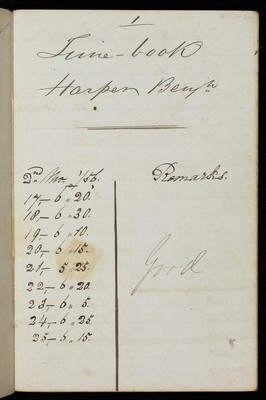 1
Time-book
Harper Benjn
2nd Mo. /56. Remarks.
17,- 6 " 20'
18,- 6 " 30.
19,- 6 " 10.
20,- 6 " 15.
21,- 5 " 25.
22,- 6 " 20.
23,- 6 " 5.
24,- 6 " 25.
25,- 6 " 15.
Good